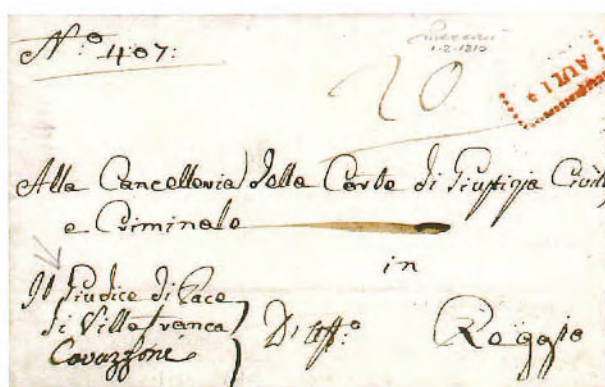 N.º 407:
1-2-1810
20
AULLA
Alla Cancelleria della Corte di Giustizia Civile
e Criminale
in
Il Giudice di Pace
di Villafranca
Cavazzoni
D'Uff.º
Reggio